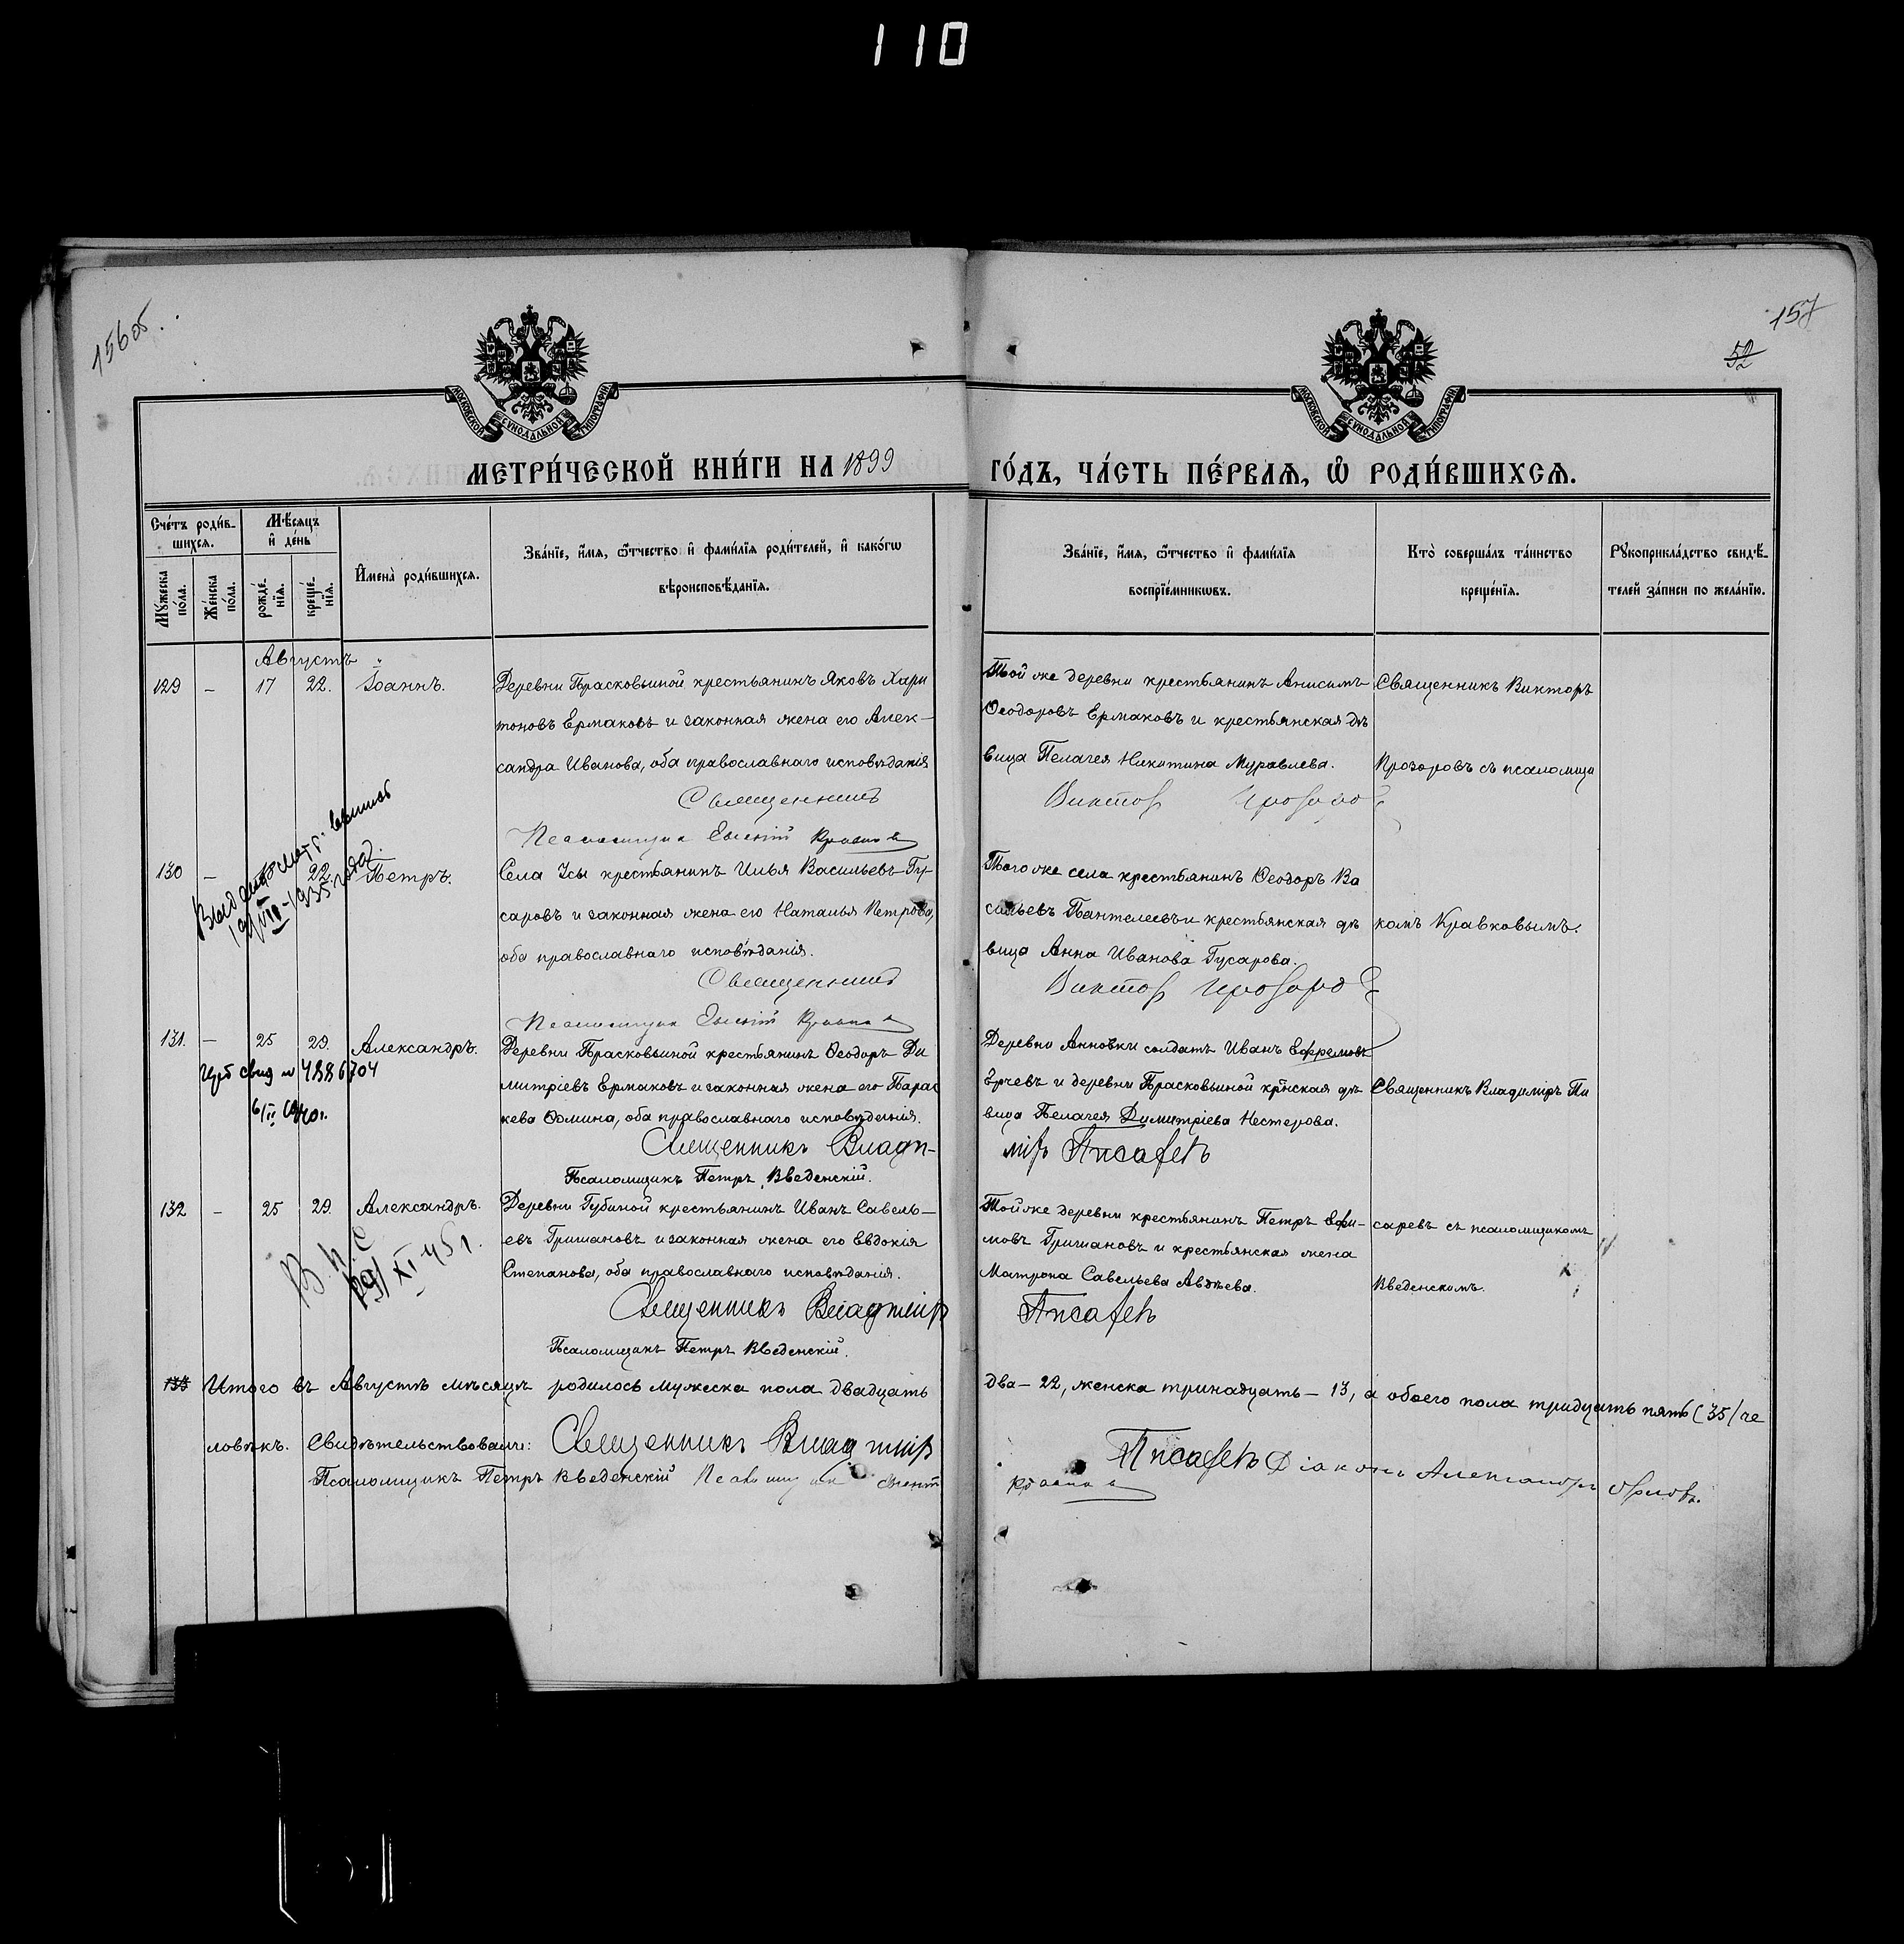 110
156об.
157
52
МОСКОВСКОЙ СѴНОДАЛЬНОЙ ТИПОГРАФІИ
МОСКОВСКОЙ СѴНОДАЛЬНОЙ ТИПОГРАФІИ
МЕТРИ́ЧЕСКОЙ КНИ́ГИ НА 1899
ГО́ДЪ, ЧА́СТЬ ПЕ́РВАѦ, Ѽ РОДИ́ВШИХСѦ.
Сче́тъ роди́в-
шихсѧ.
Мѣ́сяцъ
и҆ де́нь
Му́жеска
по́ла.
Же́нска
по́ла.
рожде́-
нїѧ.
креще́-
нїѧ.
И҆мена̀ роди́вшихсѧ.
Зва́нїе, и҆́мѧ, ѿ́чество и҆ фами́лїѧ роди́телей, и҆ како́гѡ
вѣроисповѣ́данїѧ.
Зва́нїе, и҆́мѧ, ѿ́чество и҆ фами́лїѧ
воспрїе́мникѡвъ.
Кто̀ соверша́лъ та́инство
креще́нїѧ.
Рꙋкоприкла́дство свидѣ́-
телей за́писи по жела́нїю.
Августъ
129 — 17 22. Іоаннъ.
Деревни Прасковьиной крестьянинъ Яковъ Хари
тоновъ Ермаковъ и законная жена его Алек-
сандра Иванова, оба православнаго исповѣданія
Священникъ
Псаломщикъ Евгеній Кравковъ
Той же деревни крестьянинъ Анисимъ
Ѳеодоровъ Ермаковъ и крестьянская дѣ
вица Пелагея Никитина Муравлева.
Викторъ Прозоровъ
Священникъ Викторъ
Прозоровъ съ псаломщи
130 — 22. Петръ.
19/VIII-1935 года.
Села Усы крестьянинъ Илья Васильевъ Гу-
саровъ и законная жена его Наталья Петрова,
оба православнаго исповѣданія.
Священникъ
Псаломщикъ Евгеній Кравковъ
Того же села крестьянинъ Ѳеодоръ Ва
сильевъ Пантелеевъ и крестьянская дѣ
вица Анна Иванова Гусарова.
Викторъ Прозоровъ
комъ Кравковымъ.
131. — 25 29. Александръ.
свид № 4886704
6/II 1940г.
Деревни Прасковьиной крестьянинъ Ѳеодоръ Ди
митріевъ Ермаковъ и законная жена его Парас
кева Ѳомина, оба православнаго исповѣданія.
Священникъ Влади-
Псаломщикъ Петръ Введенскій.
Деревни Анновки солдатъ Иванъ Ефремовъ
и деревни Прасковьиной кр̃нская дѣ
вица Пелагея Димитріева Нестерова.
міръ Писаревъ
Священникъ Владиміръ Пи
132 — 25 29. Александръ.
29/XI-45 г.
Деревни Губиной крестьянинъ Иванъ Савель-
евъ Гришановъ и законная жена его Евдокія
Степанова, оба православнаго исповѣданія.
Священникъ Владиміръ
Псаломщикъ Петръ Введенскій.
Той же деревни крестьянинъ Петръ Ефи-
мовъ Гришановъ и крестьянская жена
Матрона Савельева Авдѣева.
Писаревъ
саревъ съ псаломщикомъ
Введенскомъ.
133 Итого въ Августѣ мѣсяцѣ родилось мужеска пола двадцать
два — 22, женска тринадцать — 13, а обоего пола тридцать пять (35) че
ловѣкъ. Свидѣтельствовали: Священникъ Владиміръ
Писаревъ Діаконъ Александръ Орловъ.
Псаломщикъ Петръ Введенскій Псаломщикъ Евгеній
Кравковъ